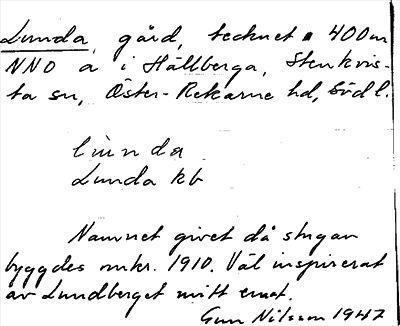 Lunda, gård, tecknet ▪ 400 m
NNO a i Hällberga, Stenkvis-
ta sn, Öster-Rekarne hd, Södl.
lùnda
Lunda kb
Namnet givet då stugan
byggdes omkr. 1910. Väl inspirerat
av Lundberget mitt emot.
Gun Nilsson 1947